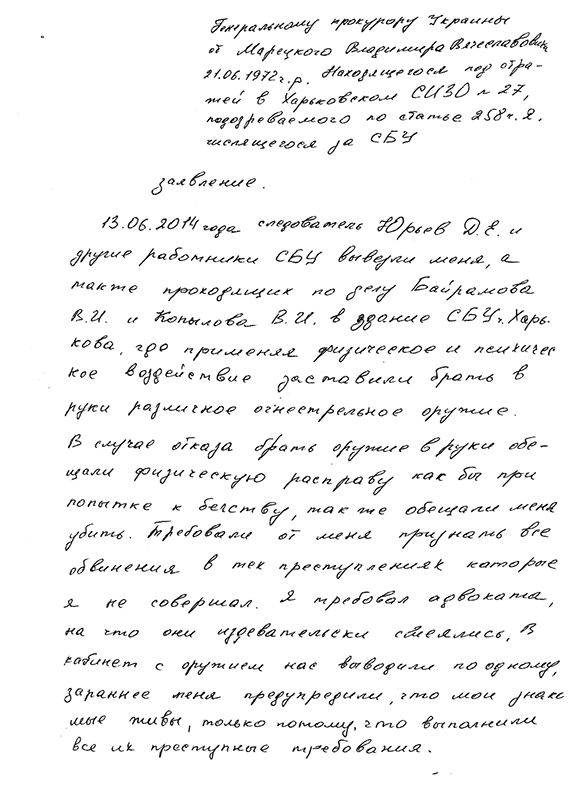 Генеральному прокурору Украины
от Марецкого Владимира Вячеславовича
21.06.1972г.р. Находящегося под стра-
жей в Харьковском СИЗО № 27,
подозреваемого по статье 258 ч. 2.
числящегося за СБУ
заявление.
13.06.2014 года следователь Юрьев Д.Е. и
другие работники СБУ вывезли меня, а
также проходящих по делу Байрамова
В.И. и Копылова В.И. в здание СБУ г. Харь-
кова, где применяя физическое и психичес
кое воздействие заставили брать в
руки различное огнестрельное оружие.
В случае отказа брать оружие в руки обе-
щали физическую расправу как бы при
попытке к бегству, так же обещали меня
убить. Требовали от меня признать все
обвинения в тех преступлениях которые
я не совершал. Я требовал адвоката,
на что они издевательски смеялись, В
кабинет с оружием нас выводили по одному,
зараннее меня предупредили, что мои знако
мые живы, только потому, что выполнили
все их преступные требования.